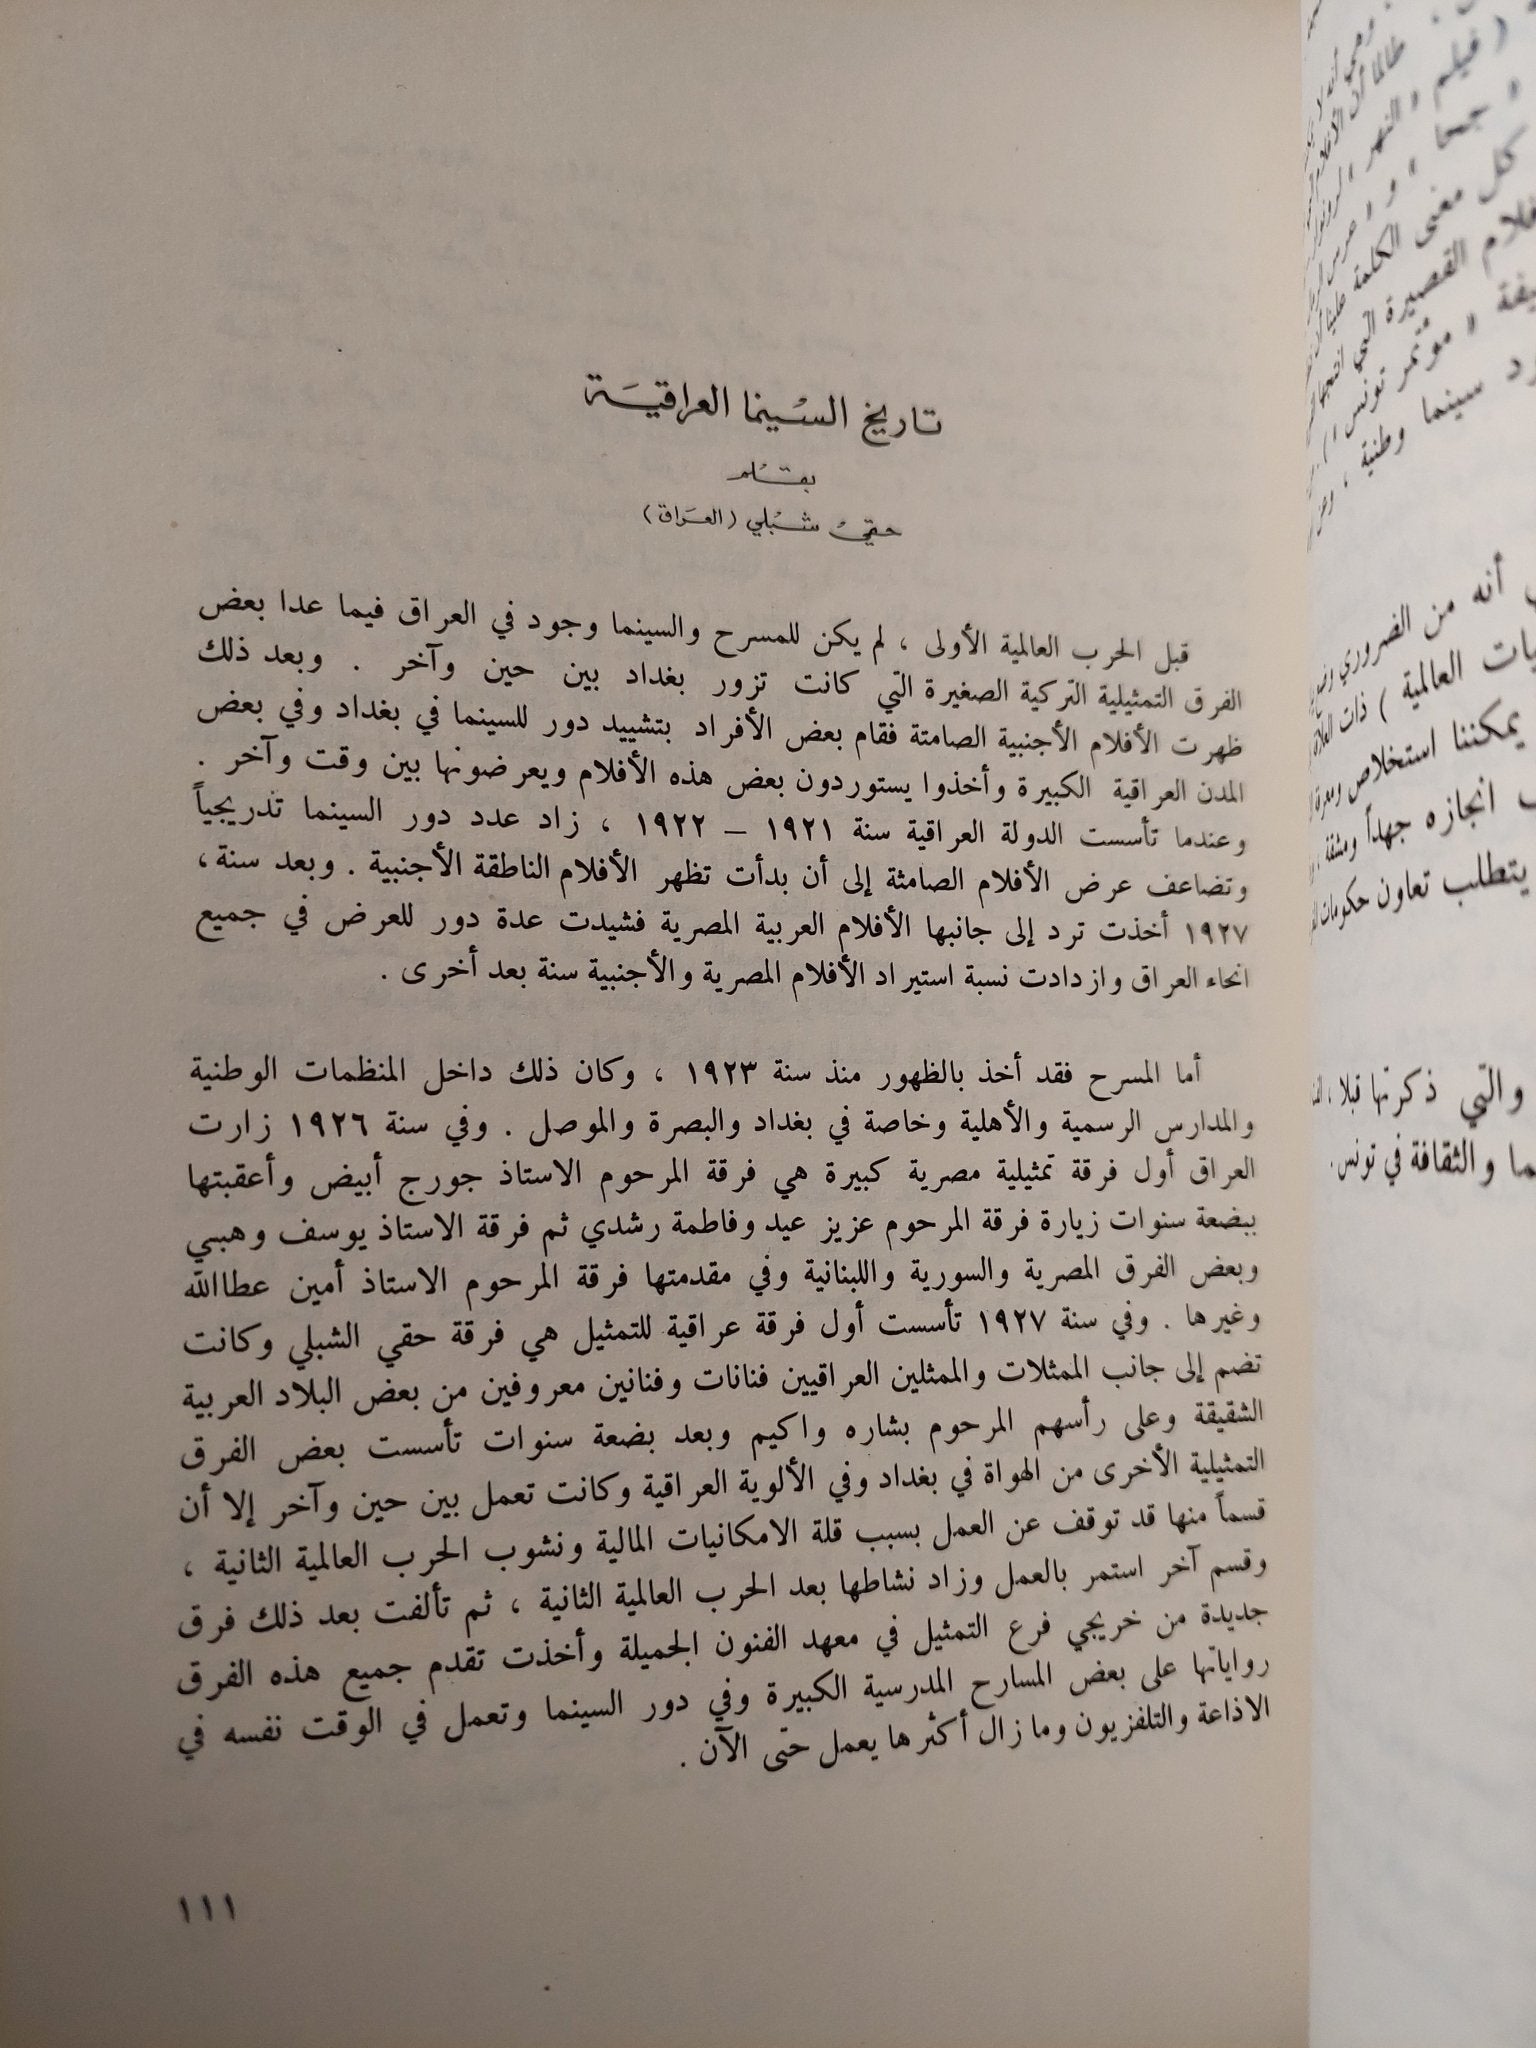 تاريخ السينما العراقية
بقلم
حقي شبلي (العراق)
قبل الحرب العالمية الأولى ، لم يكن للمسرح والسينما وجود في العراق فيما عدا بعض
الفرق التمثيلية التركية الصغيرة التي كانت تزور بغداد بين حين وآخر . وبعد ذلك
ظهرت الأفلام الأجنبية الصامتة فقام بعض الأفراد بتشييد دور للسينما في بغداد وفي بعض
المدن العراقية الكبيرة وأخذوا يستوردون بعض هذه الأفلام ويعرضونها بين وقت وآخر .
وعندما تأسست الدولة العراقية سنة ١٩٢١ – ١٩٢٢ ، زاد عدد دور السينما تدريجياً
وتضاعف عرض الأفلام الصامتة إلى أن بدأت تظهر الأفلام الناطقة الأجنبية . وبعد سنة ،
١٩٢٧ أخذت ترد إلى جانبها الأفلام العربية المصرية فشيدت عدة دور للعرض في جميع
انحاء العراق وازدادت نسبة استيراد الأفلام المصرية والأجنبية سنة بعد أخرى .
أما المسرح فقد أخذ بالظهور منذ سنة ١٩٢٣ ، وكان ذلك داخل المنظمات الوطنية
والمدارس الرسمية والأهلية وخاصة في بغداد والبصرة والموصل . وفي سنة ١٩٢٦ زارت
العراق أول فرقة تمثيلية مصرية كبيرة هي فرقة المرحوم الاستاذ جورج أبيض وأعقبتها
ببضعة سنوات زيارة فرقة المرحوم عزيز عيد وفاطمة رشدي ثم فرقة الاستاذ يوسف وهبي
وبعض الفرق المصرية والسورية واللبنانية وفي مقدمتها فرقة المرحوم الاستاذ أمين عطاالله
وغيرها . وفي سنة ١٩٢٧ تأسست أول فرقة عراقية للتمثيل هي فرقة حقي الشبلي وكانت
تضم إلى جانب الممثلات والممثلين العراقيين فنانات وفنانين معروفين من بعض البلاد العربية
الشقيقة وعلى رأسهم المرحوم بشاره واكيم وبعد بضعة سنوات تأسست بعض الفرق
التمثيلية الأخرى من الهواة في بغداد وفي الألوية العراقية وكانت تعمل بين حين وآخر إلا أن
قسماً منها قد توقف عن العمل بسبب قلة الامكانيات المالية ونشوب الحرب العالمية الثانية ،
وقسم آخر استمر بالعمل وزاد نشاطها بعد الحرب العالمية الثانية ، ثم تألفت بعد ذلك فرق
جديدة من خريجي فرع التمثيل في معهد الفنون الجميلة وأخذت تقدم جميع هذه الفرق
رواياتها على بعض المسارح المدرسية الكبيرة وفي دور السينما وتعمل في الوقت نفسه في
الاذاعة والتلفزيون وما زال أكثرها يعمل حتى الآن .
١١١
طالما أن الأفلام
( فيلم « النهر
« جحا » و «
كل معنى الكلمة علينا أن
القصيرة التي
« مؤتمر تونس » )
سينما وطنية ،
أنه من الضروري
العالمية ) ذات
يمكننا استخلاص
انجازه جهداً ومشقة
يتطلب تعاون حكومات
والتي ذكرتها قبلا ،
والثقافة في تونس .